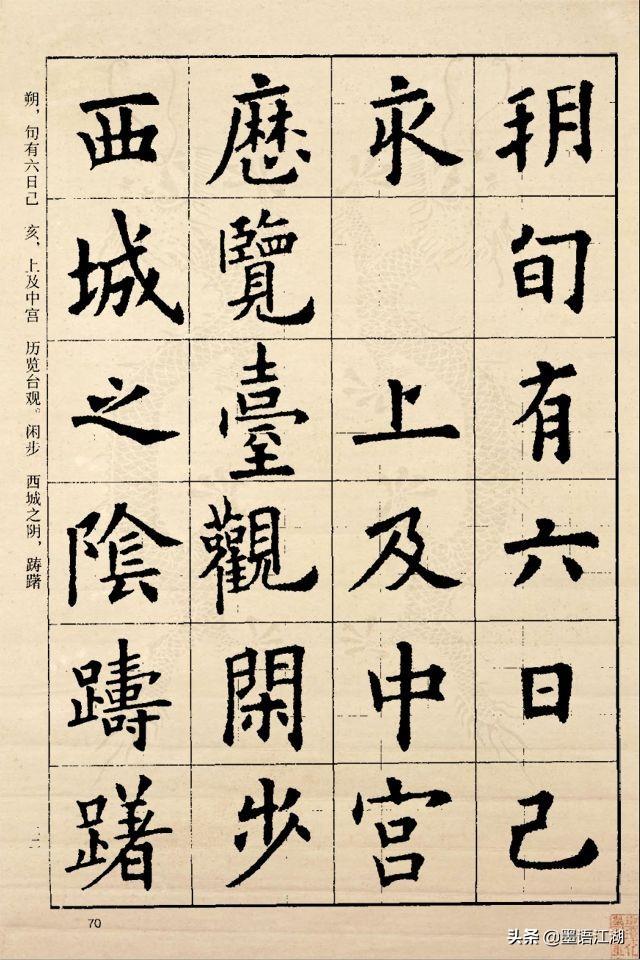 朔旬有六日己
亥上及中宫
歷覽臺觀閑步
西城之陰躊躇
朔，旬有六日己亥、上及中宫历览台观。闲步西城之阴，踌躇
70
头条@墨语江湖